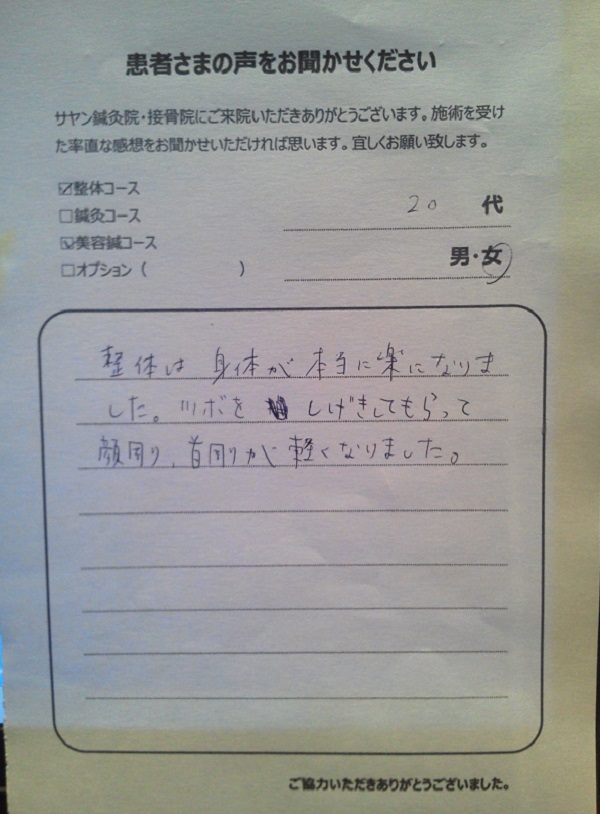 患者さまの声をお聞かせください
サヤン鍼灸院・接骨院にご来院いただきありがとうございます。施術を受け
た率直な感想をお聞かせいただければ思います。宜しくお願い致します。
☑整体コース
□鍼灸コース
20 代
☑美容鍼コース
男・女
□オプション（ ）
整体は身体が本当に楽になりま
した。ツボを しげきしてもらって
顔周り、首周りが軽くなりました。
ご協力いただきありがとうございました。